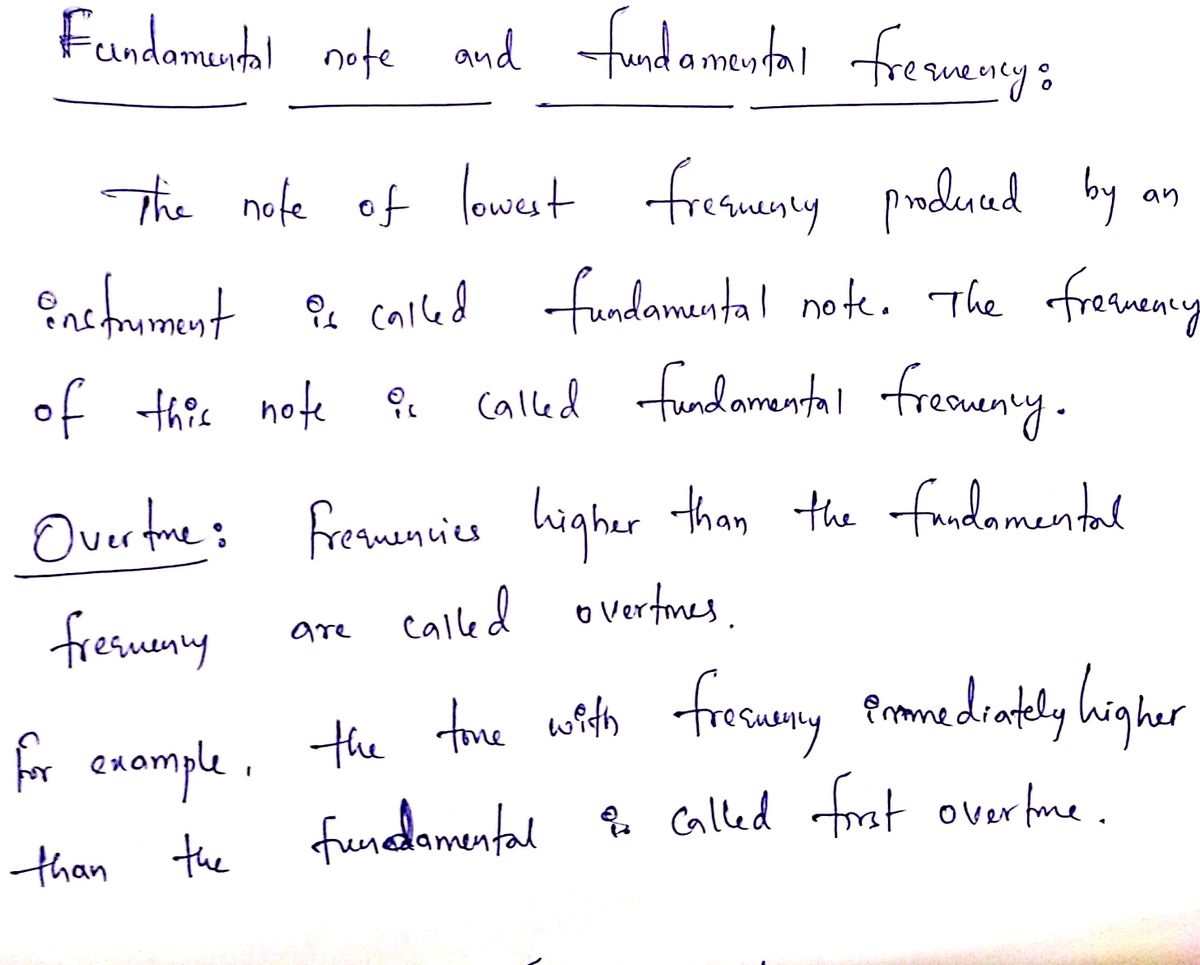 Fundamental note and fundamental frequency:
The note of lowest frequency produced by an
instrument is called fundamental note. The frequency
of this note is called fundamental frequency.
Overtone: Frequencies higher than the fundamental
frequency are called overtones.
For example, the tone with frequency immediately higher
than the fundamental is called first overtone.